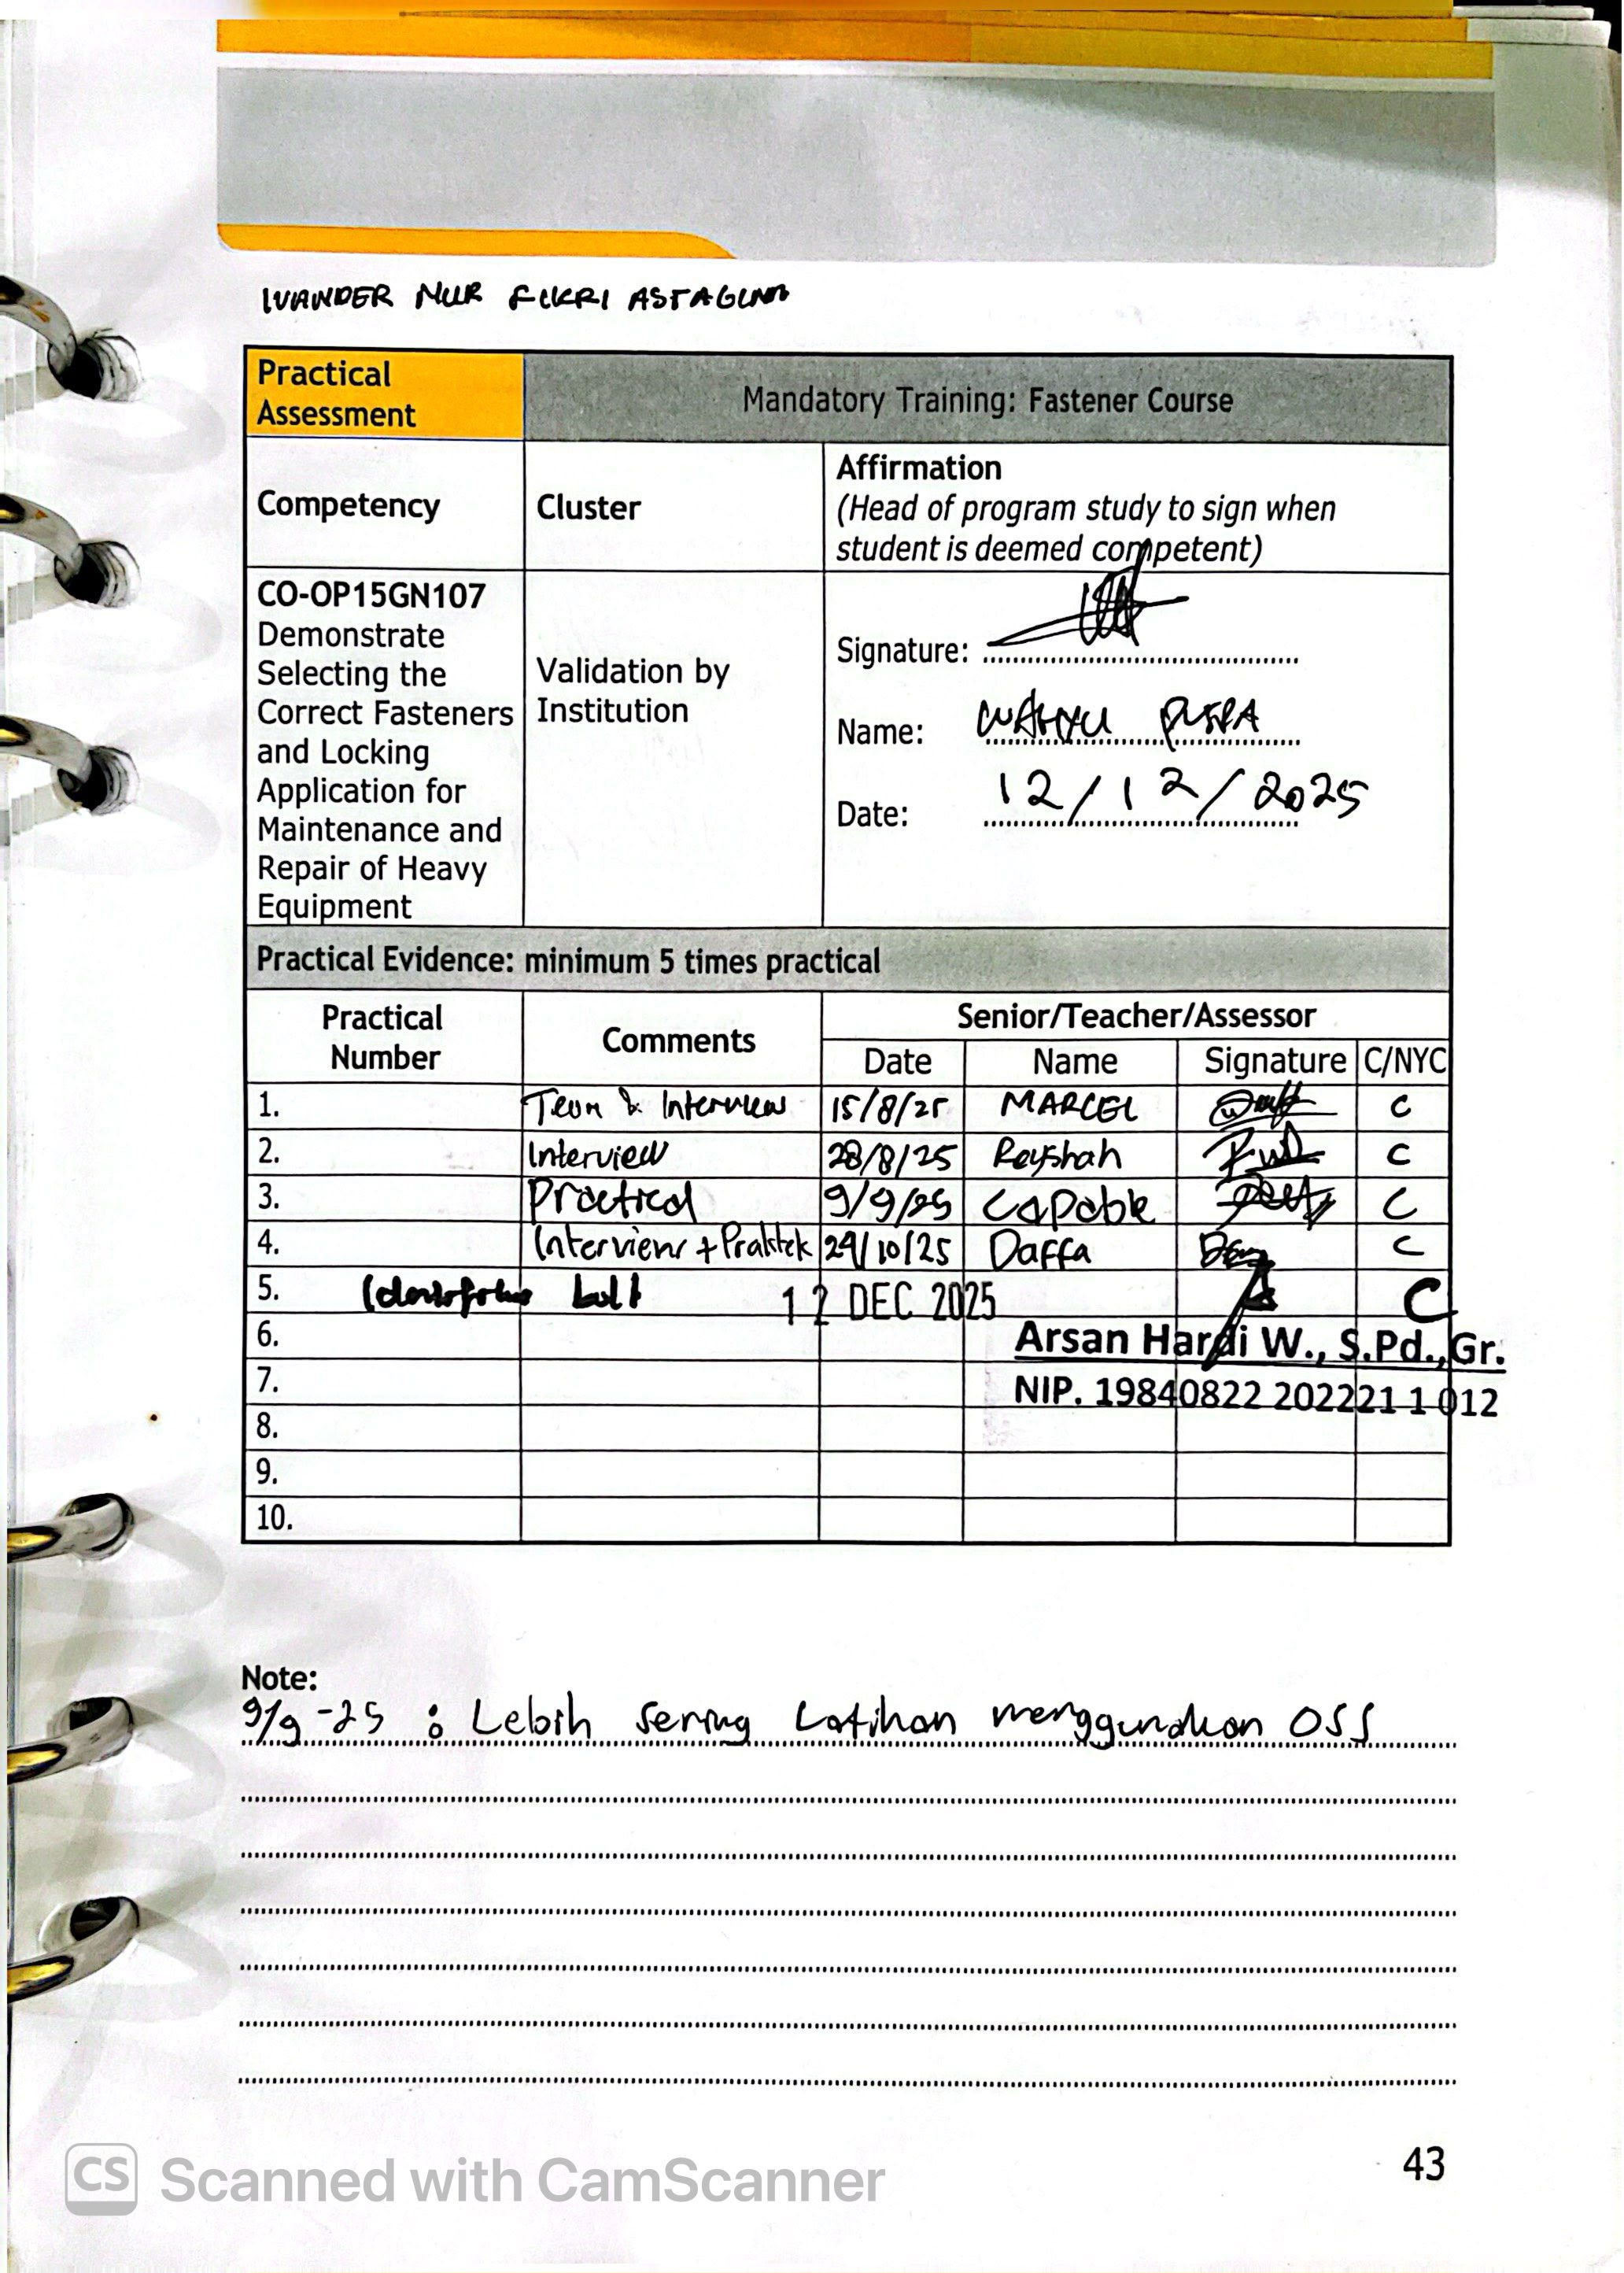 IVANDER NUR FIKRI ASTAGUNA
Practical Assessment
Mandatory Training: Fastener Course
Competency
Cluster
Affirmation
(Head of program study to sign when
student is deemed competent)
CO-OP15GN107
Demonstrate
Selecting the
Correct Fasteners
and Locking
Application for
Maintenance and
Repair of Heavy
Equipment
Validation by
Institution
Signature:
Name: WAHYU
Date: 12/12/2025
Practical Evidence: minimum 5 times practical
Practical Number
Comments
Senior/Teacher/Assessor
Date Name Signature C/NYC
1. & Interview 15/8/25 MARCEL C
2. Interview 28/8/25 Reyshah C
3. Practical 9/9/25 C
4. Interview + Praktek 29/10/25 Daffa C
5. 12 DEC 2025 C
6. Arsan Hardi W., S.Pd.,Gr.
7. NIP. 19840822 202221 1 012
8.
9.
10.
Note:
9/9-25 : Lebih sering Latihan menggunakan OSS
43
CS Scanned with CamScanner